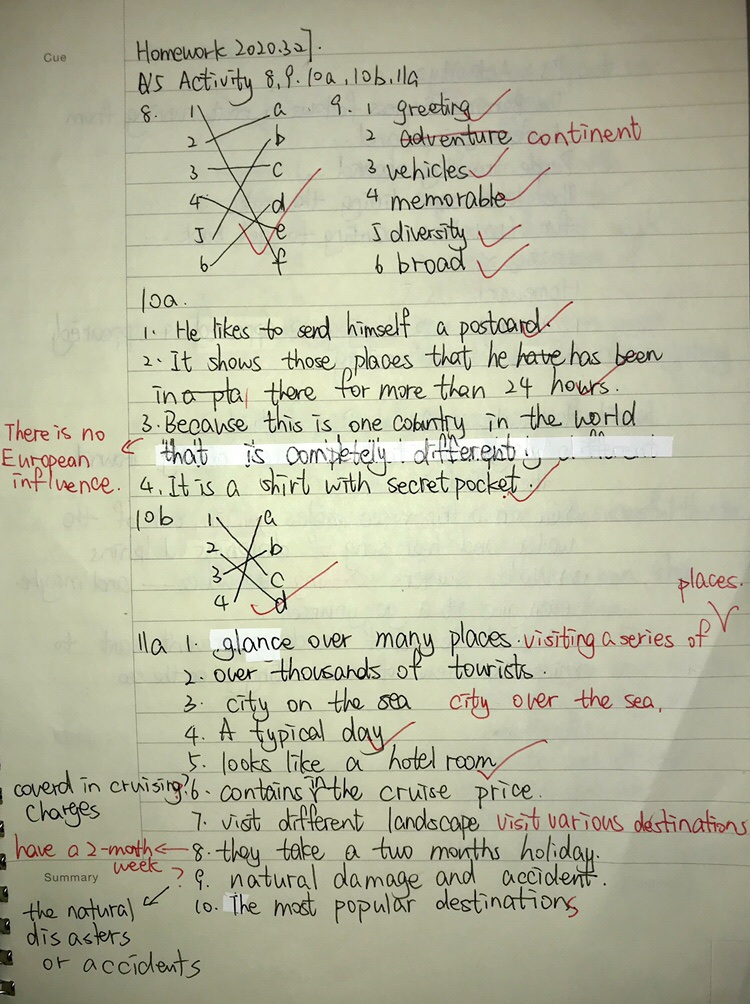 Cue
Homework 2020.3.27.
A/S Activity 8,9.10a,10b,11a
8. 1 a 9. 1 greeting
2 b 2 adventure continent
3 c 3 vehicles
4 d 4 memorable
5 e 5 diversity
6 f 6 broad
10a.
1. He likes to send himself a postcard.
2. It shows those places that he have has been
in a pla there for more than 24 hours.
3. Because this is one country in the world
that is completely different.
There is no
European
influence.
4. It is a shirt with secret pocket.
10b 1 a
2 b
3 c
4 d
places.
11a 1. glance over many places. visiting a series of
2. over thousands of tourists.
3. city on the sea city over the sea.
4. A typical day
5. looks like a hotel room
coverd in cruising? 6. contains in the cruise price.
charges
7. visit different landscape visit various destinations
have a 2-moth 8. they take a two months holiday.
week
Summary ? 9. natural damage and accident.
the natural 10. The most popular destinations
disasters
or accidents